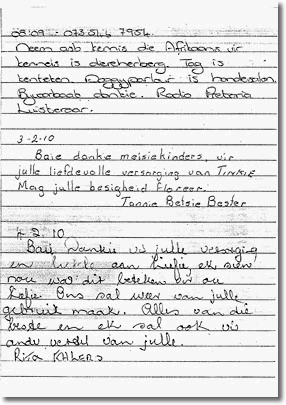 08:09 - 073 544 7954.
Neem asb kennis die Afrikaans vir
kennels is diereherberg. Tog is
tentaten. Doggyparlour is hondesalon.
Byvoorbaat dankie. Radio Pretoria
Luisteraar.
3-2-10
Baie dankie meisiekinders, vir
julle liefdevolle versorging van TINKIE
Mag julle besigheid floreer.
Tannie Betsie Bester
4 2 10
Baie dankie vir julle versorging
en liefde aan Liefie, ek sien
nou wat dit beteken vir ou
Liefie. Ons sal weer van julle
gebruik maak. Alles van die
beste en ek sal ook vir
ander vertel van julle.
Rita EHLERS